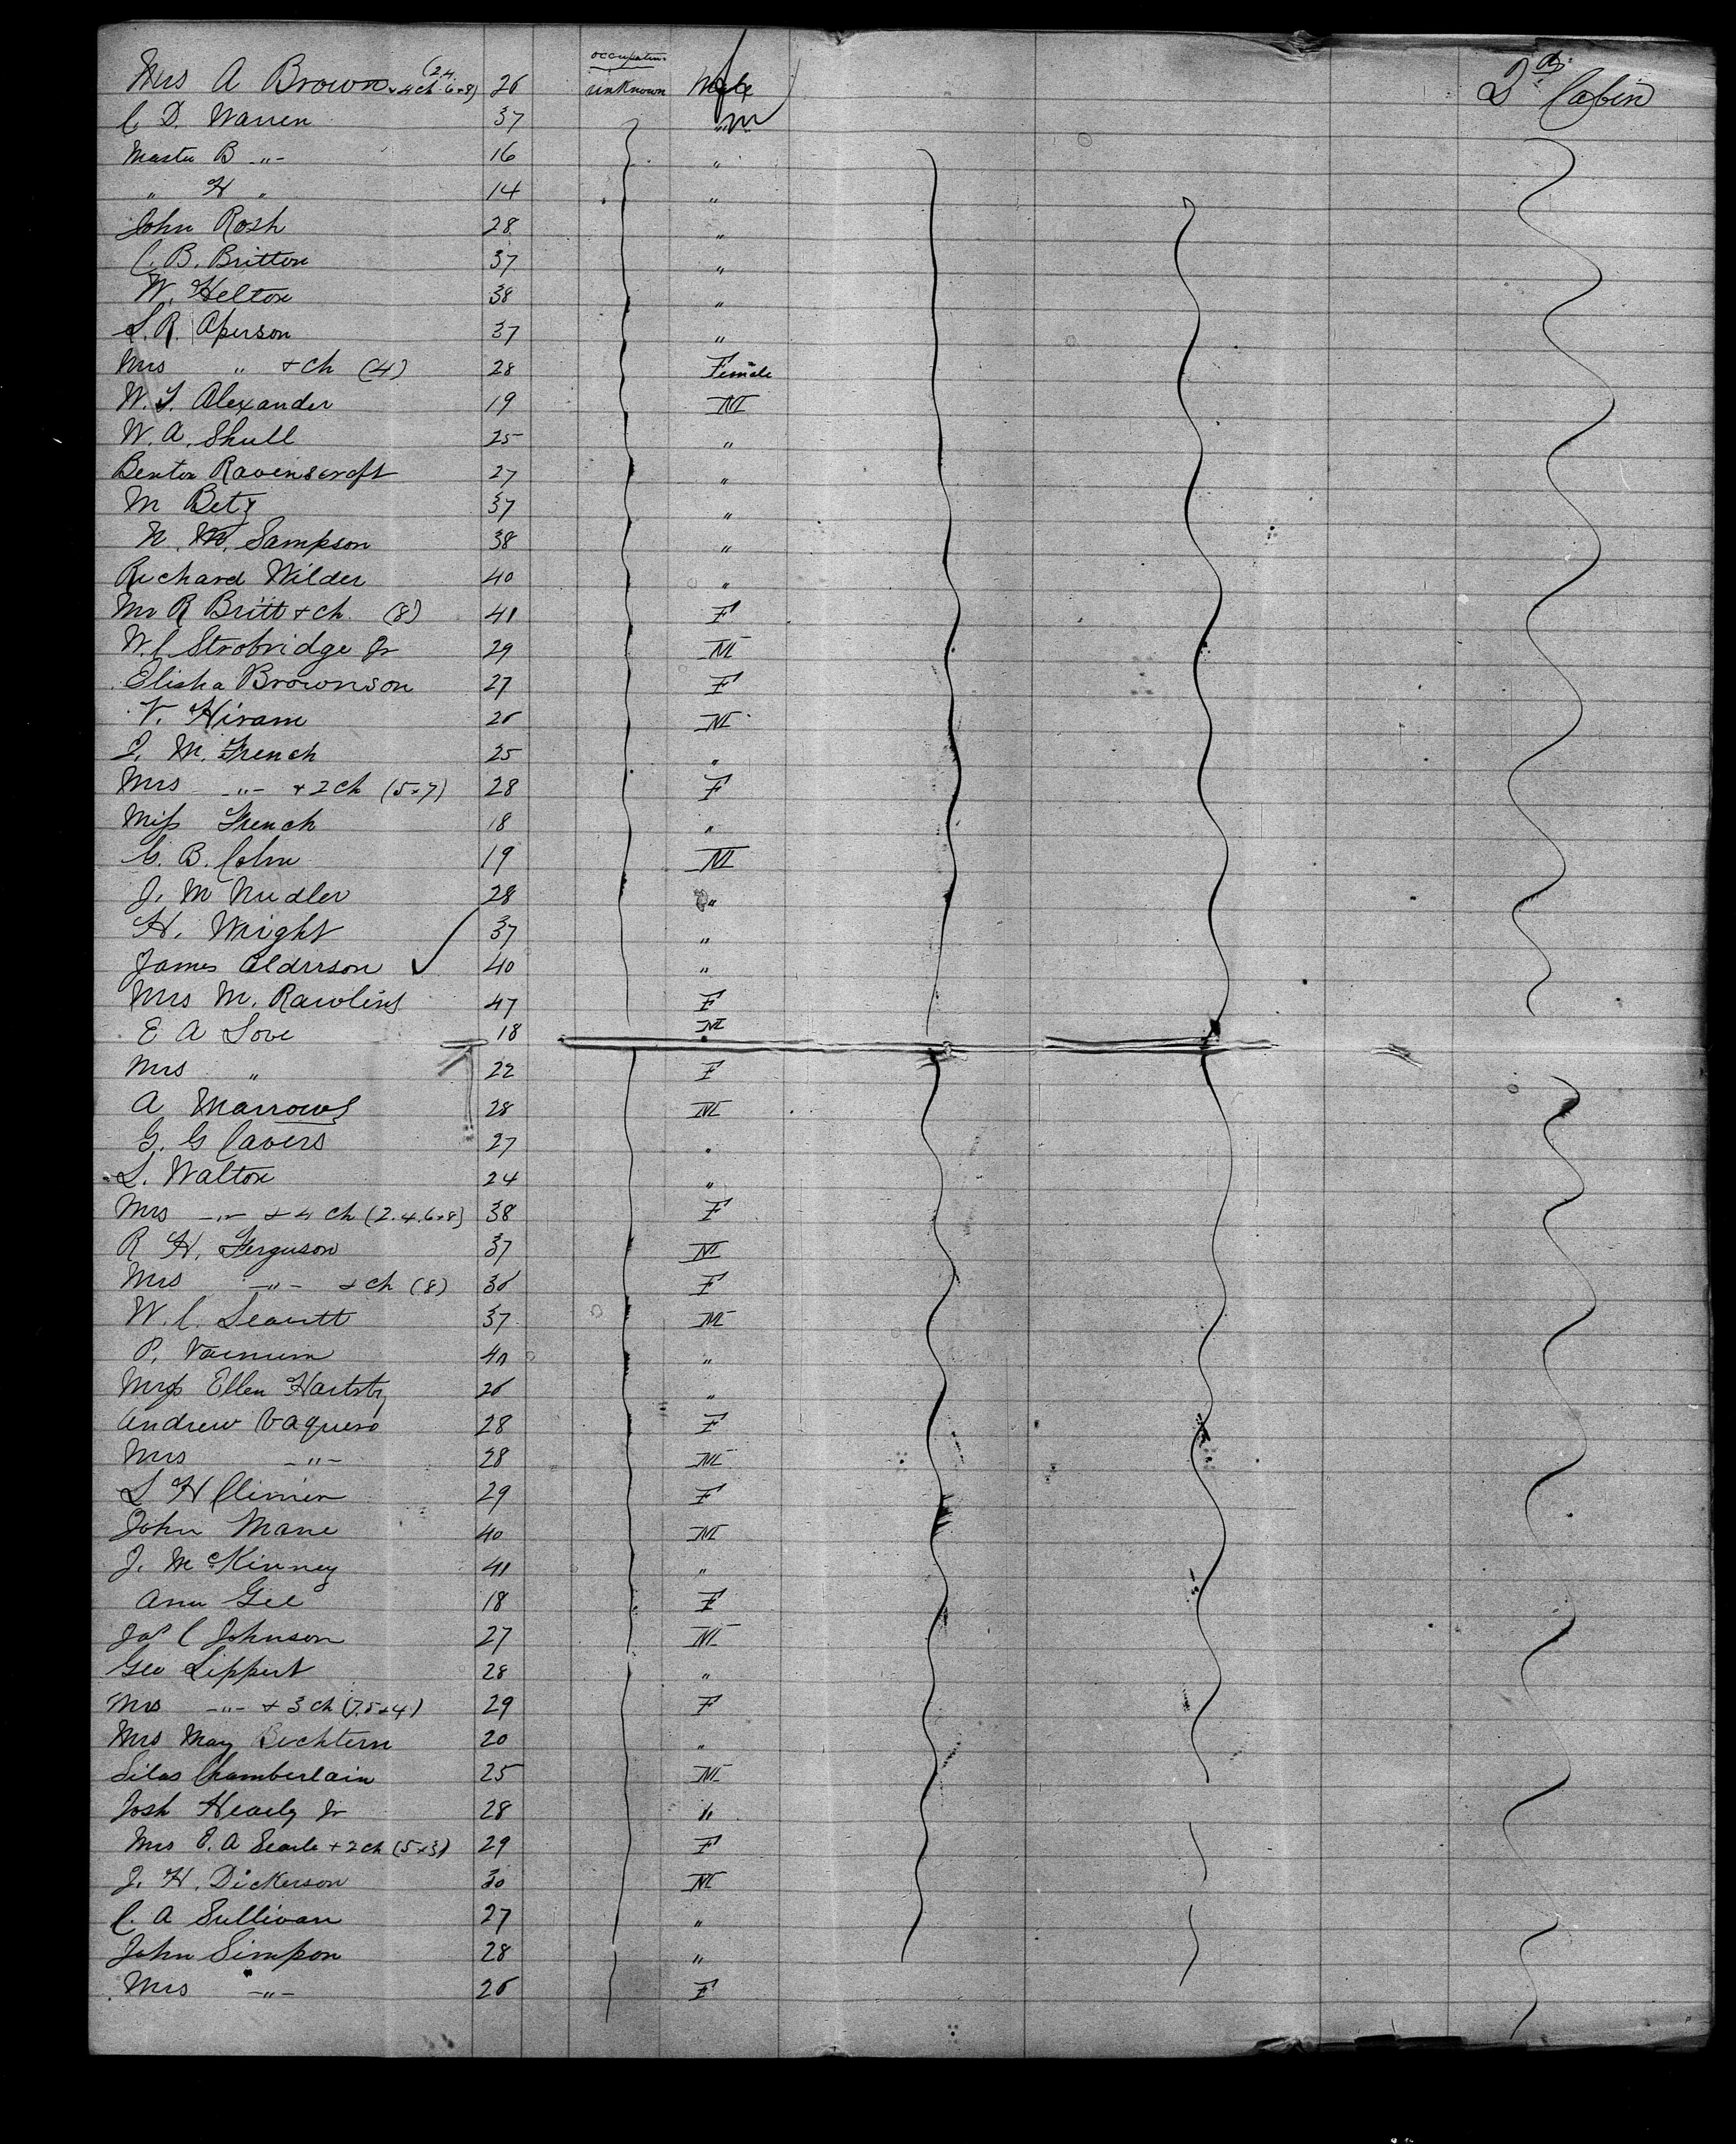 occupation
Mrs A Brown + 4 ch (2.4. 6+8) 26 unknown Male 2d Cabin
C D. Warren 37 " m
Master B -"- 16 "
" H " 14 "
John Rosh 28 "
C. B. Britton 37 "
W. Helton 38 "
S. R. Aperson 37 "
Mrs " + ch (4) 28 Female
W. T. Alexander 19 M
W. A. Shull 25 "
Benton Ravenscroft 27 "
M Betz 37 "
N. M. Sampson 38 "
Richard Wilder 40 "
Mr R Britt + ch. (8) 41 F
W. C Strobridge Jr 29 M
Elisha Brownson 27 F
V. Hiram 26 M
J. M. French 25 "
Mrs -"- + 2 ch (5+7) 28 F
Miss French 18 "
C. B. Cohn 19 M
J. M Nudler 28 "
H. Wright 37 "
James Alderson 40 "
Mrs M. Rawlins 47 F
E A Love 18 M
Mrs " 22 F
A Marrows 28 M
G. G Cavers 27 "
L. Walton 24 "
Mrs -"- + 4 ch (2.4.6+8) 38 F
R H. Ferguson 37 M
Mrs -"- + ch (8) 36 F
W. C. Leavitt 37 M
P. Varnum 40 "
Miss Ellen 26 "
Andrew Vaquero 28 F
Mrs -"- 28 M
L H 29 F
John Mane 40 M
J. McKinney 41 "
Ann Gee 18 F
Jas C Johnson 27 M
Geo Lippert 28 "
Mrs -"- + 3 ch (7.5+4) 29 F
Mrs May Bechtern 20 "
Silas Chamberlain 25 M
Josh Healy Jr 28 "
Mrs E. A Searle + 2 ch (5+3) 29 F
J. H. Dickerson 30 M
C. A Sullivan 27 "
John Simpson 28 "
Mrs -"- 26 F